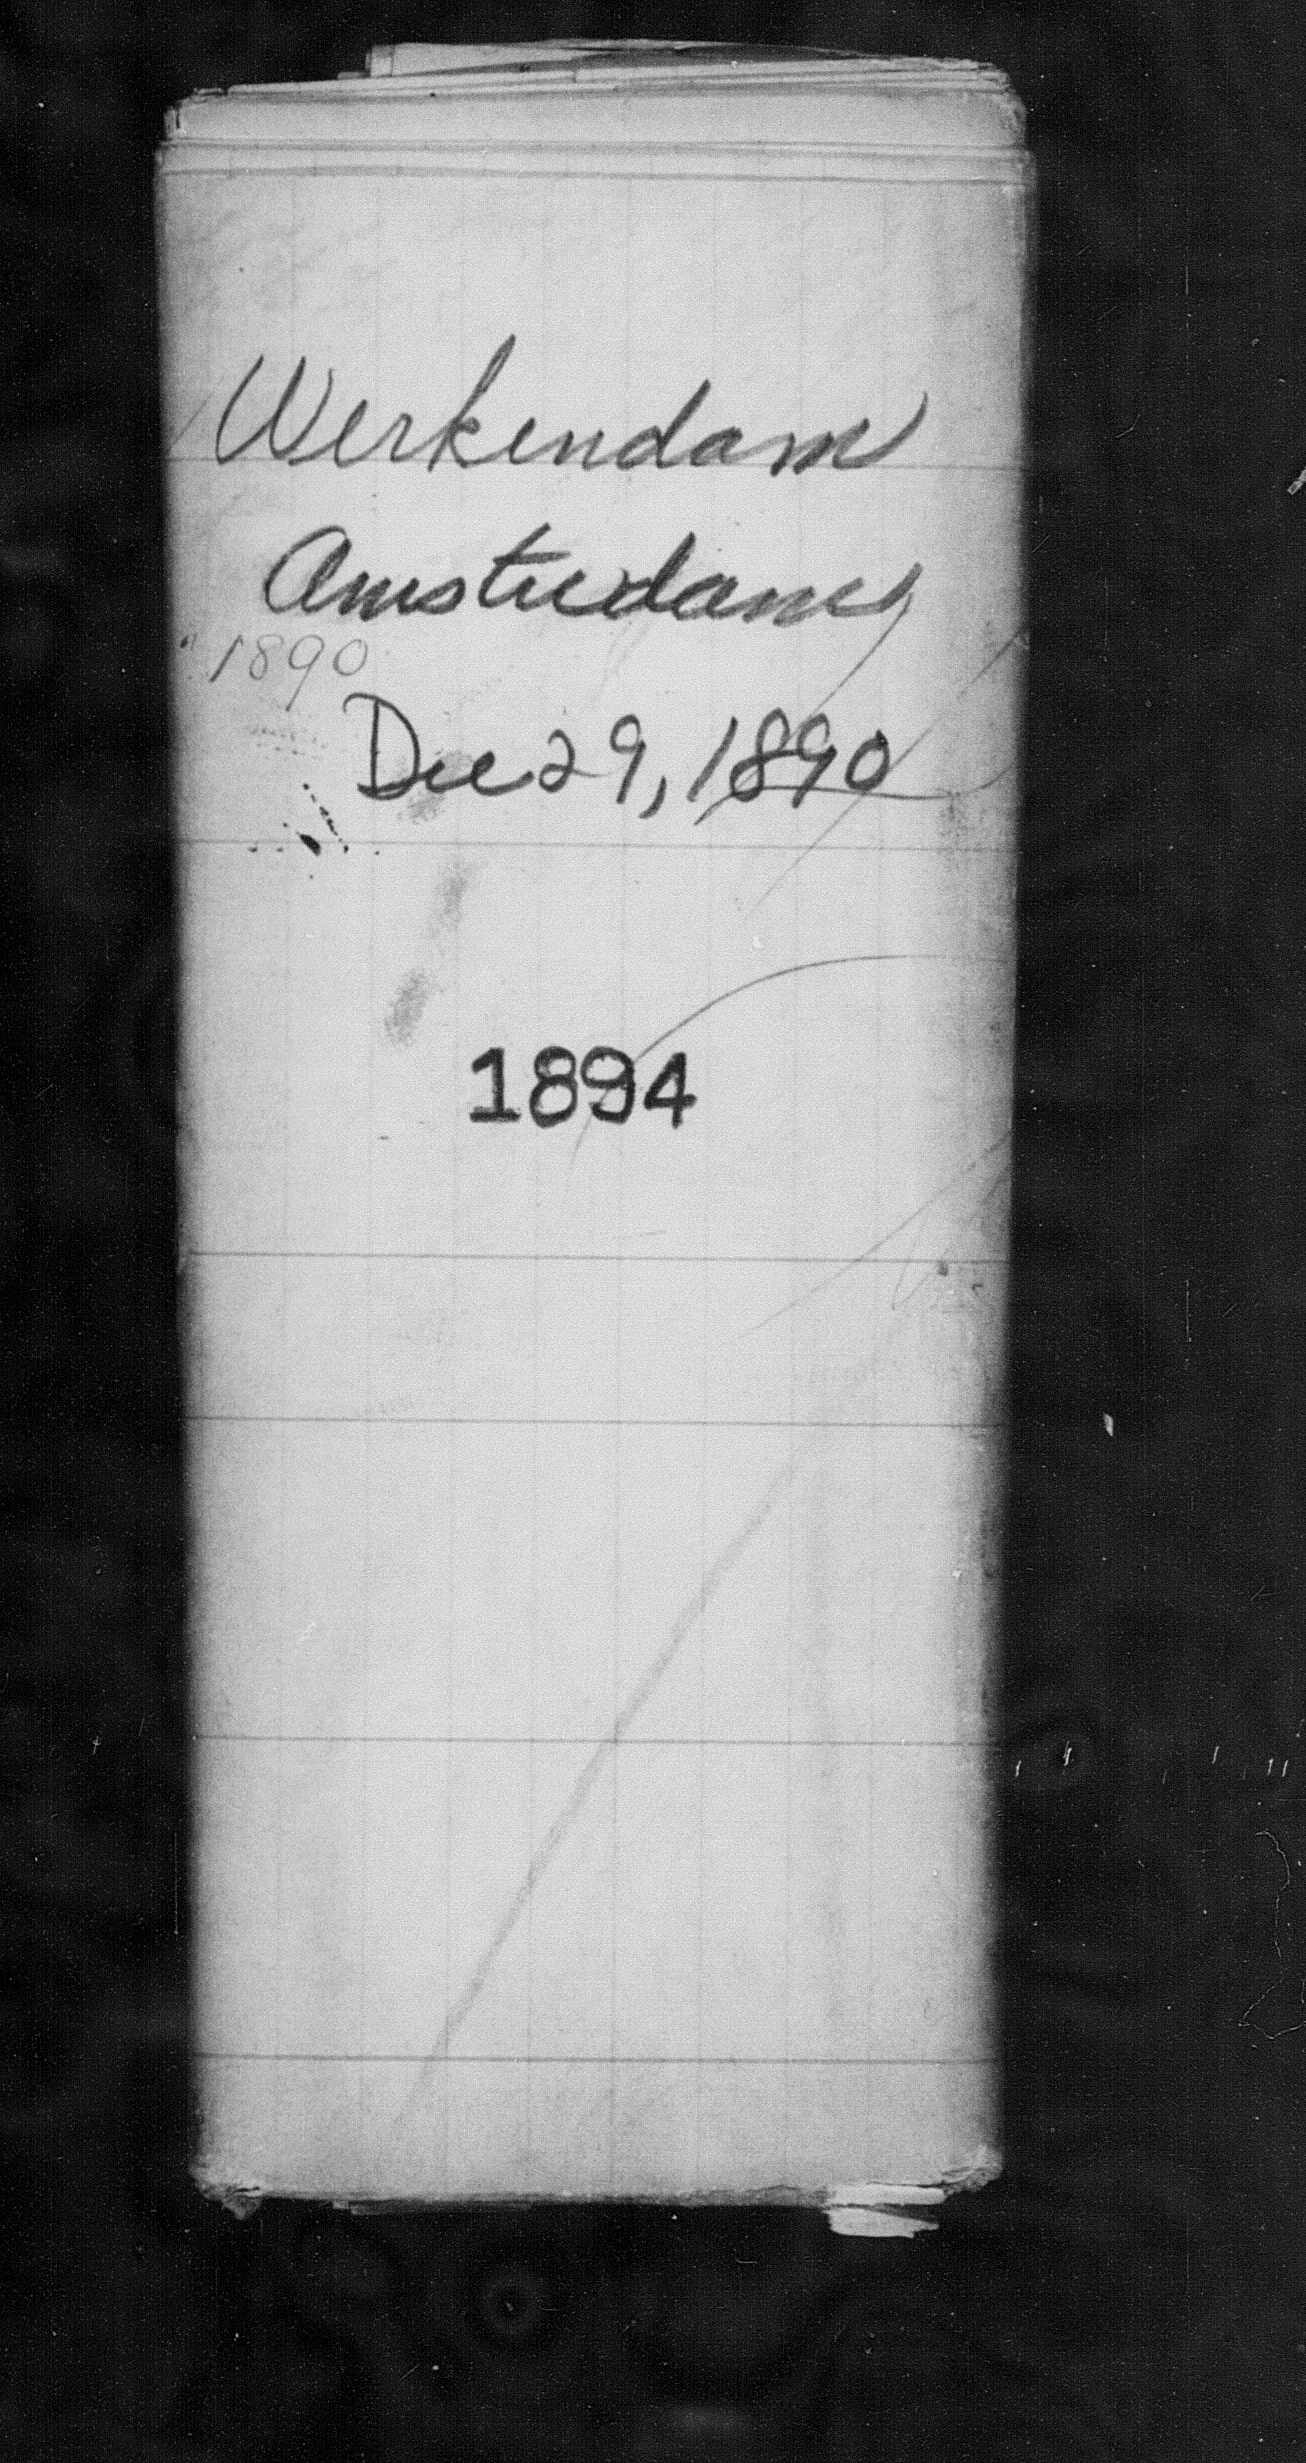 Werkendam
Amsterdam
1890
Dec 29, 1890
1894